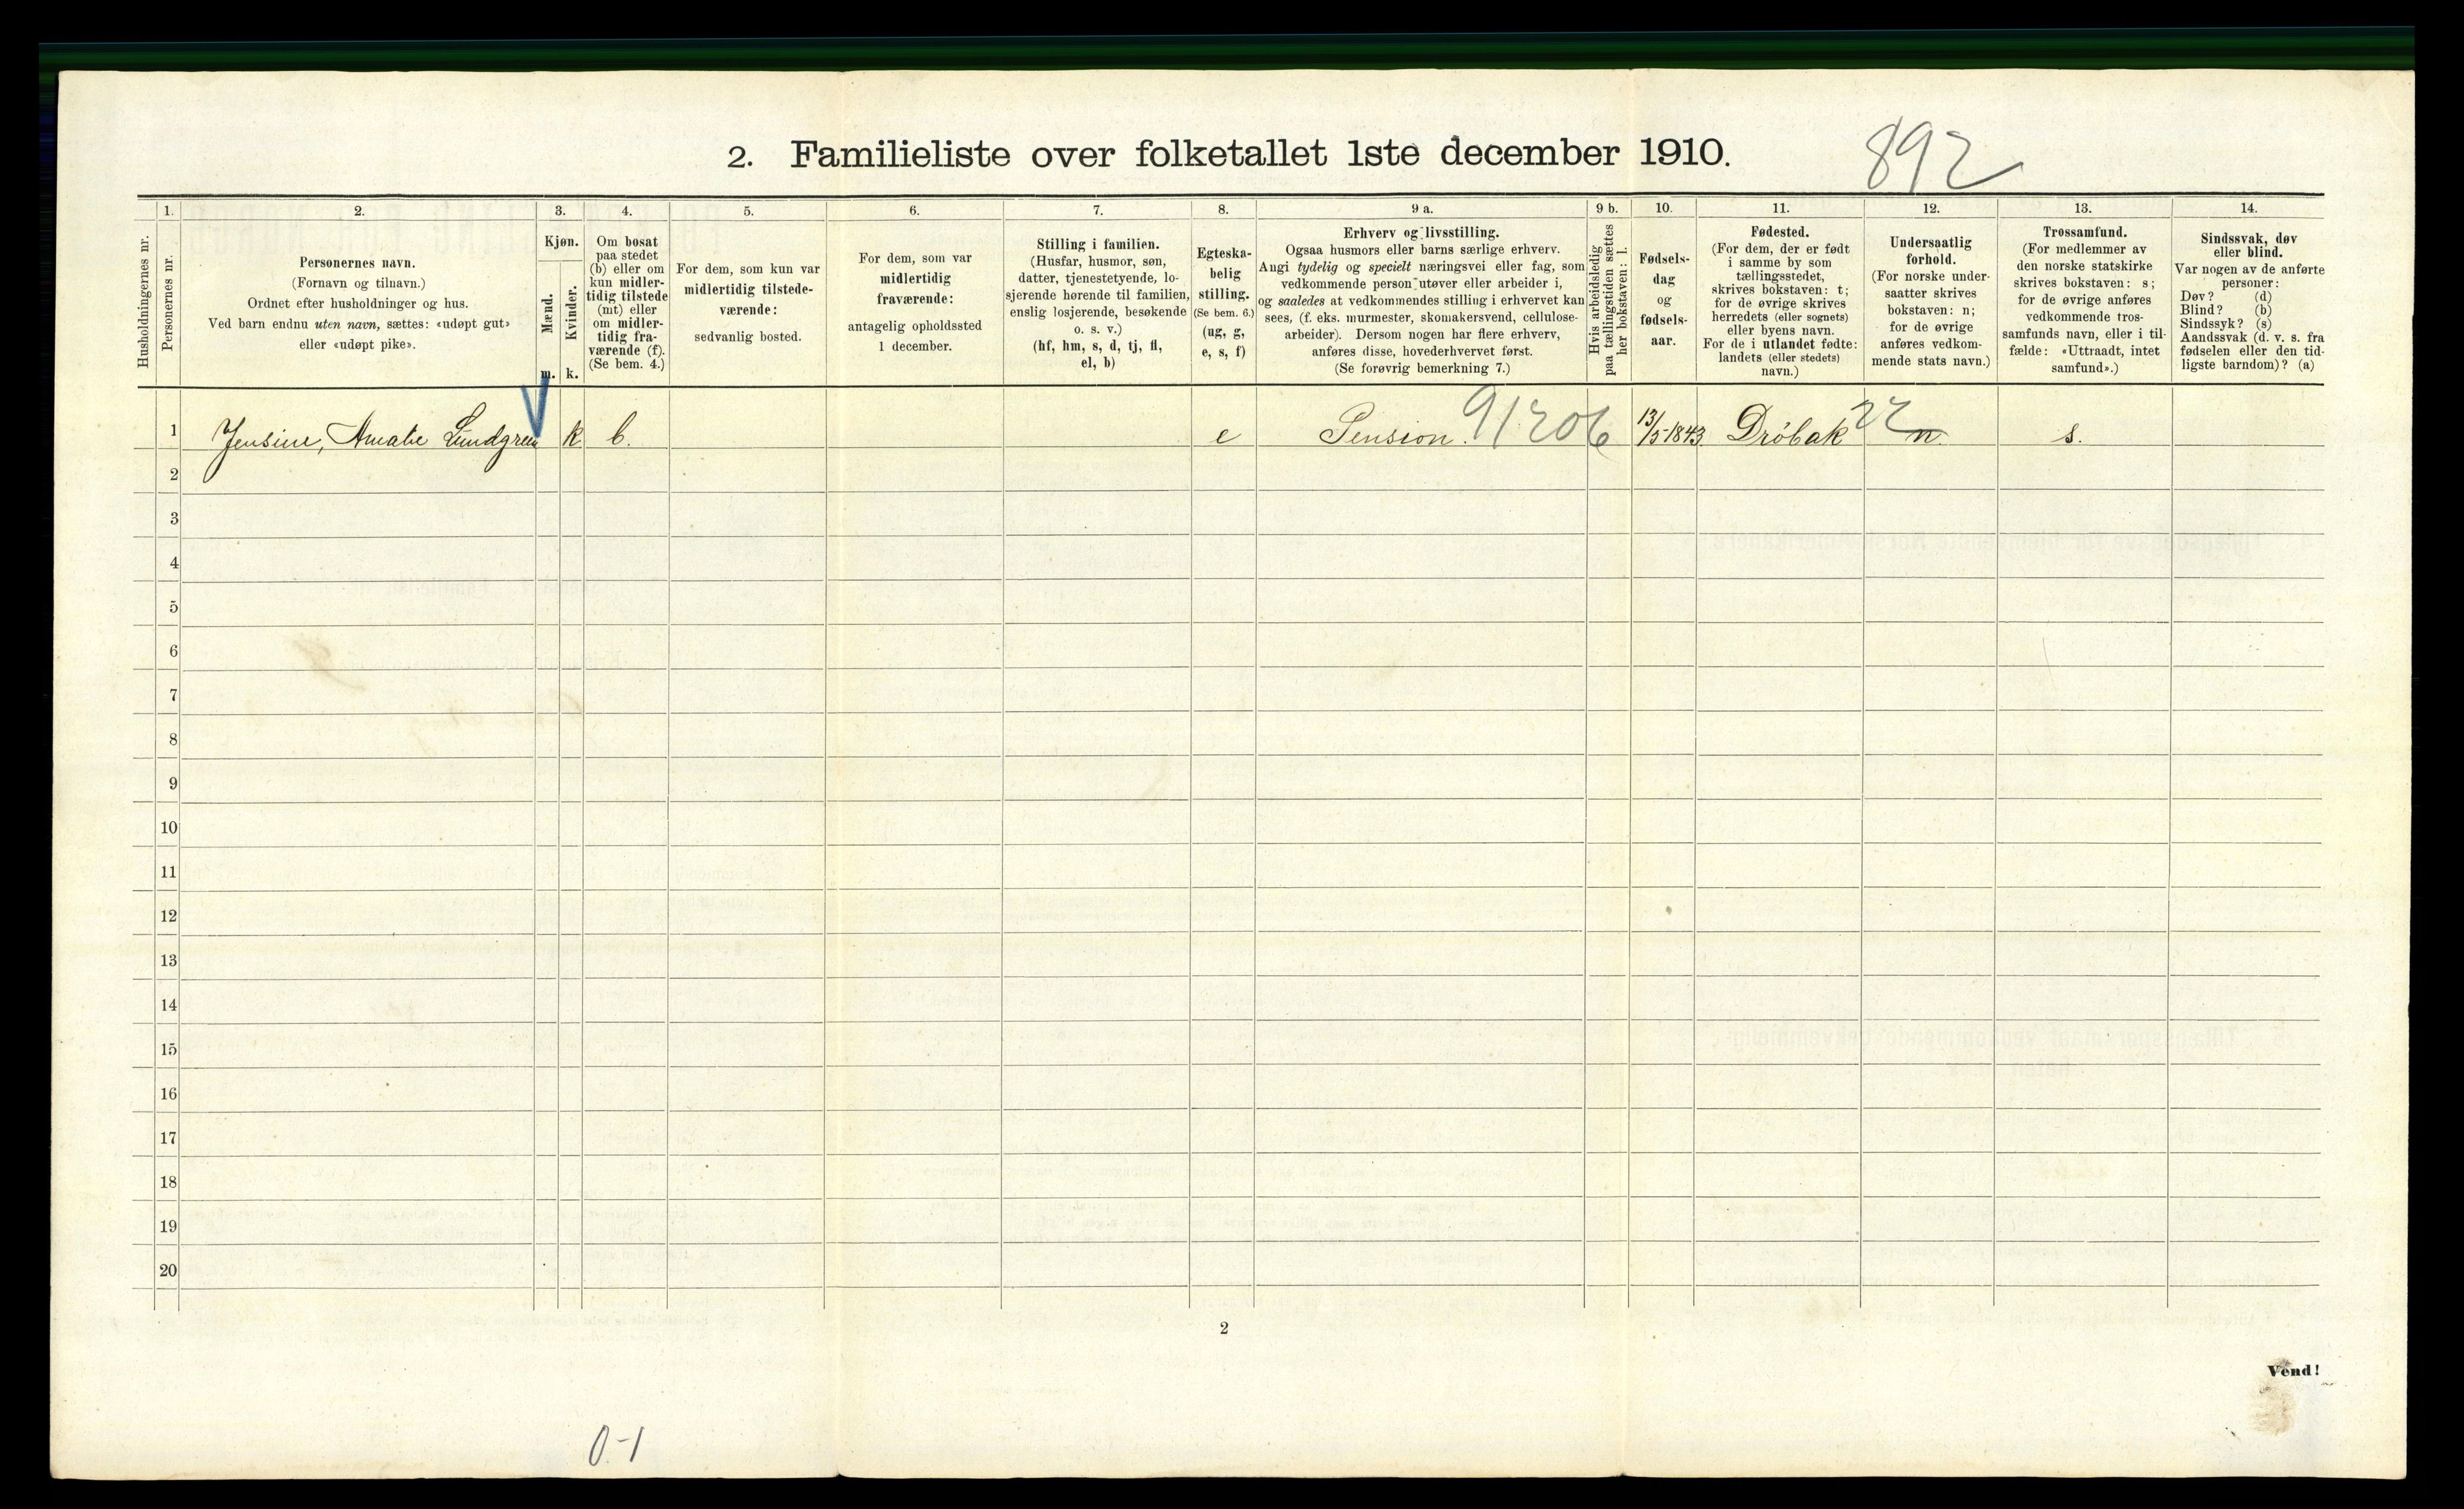 2. Familieliste over folketallet 1ste december 1910.
892
1. 2. 3. 4. 5. 6. 7. 8. 9 a. 9 b. 10. 11. 12. 13. 14.
Husholdningernes nr.
Personernes nr.
Personernes navn.
(Fornavn og tilnavn.)
Ordnet efter husholdninger og hus.
Ved barn endnu uten navn, sættes: «udøpt gut»
eller «udøpt pike».
Kjøn.
Mænd.
Kvinder.
m. k.
Om bosat
paa stedet
(b) eller om
kun midler-
tidig tilstede
(mt) eller
om midler-
tidig fra-
værende (f).
(Se bem. 4.)
For dem, som kun var
midlertidig tilstede-
værende:
sedvanlig bosted.
For dem, som var
midlertidig
fraværende:
antagelig opholdssted
1 december.
Stilling i familien.
(Husfar, husmor, søn,
datter, tjenestetyende, lo-
sjerende hørende til familien,
enslig losjerende, besøkende
o. s. v.)
(hf, hm, s, d, tj, fl,
el, b)
Egteska-
belig
stilling.
(Se bem. 6.)
(ug, g,
e, s, f)
Erhverv og livsstilling.
Ogsaa husmors eller barns særlige erhverv.
Angi tydelig og specielt næringsvei eller fag, som
vedkommende person utøver eller arbeider i,
og saaledes at vedkommendes stilling i erhvervet kan
sees, (f. eks. murmester, skomakersvend, cellulose-
arbeider). Dersom nogen har flere erhverv,
anføres disse, hovederhvervet først.
(Se forøvrig bemerkning 7.)
Hvis arbeidsledig
paa tællingstiden sættes
her bokstaven: l.
Fødsels-
dag
og
fødsels-
aar.
Fødested.
(For dem, der er født
i samme by som
tællingsstedet,
skrives bokstaven: t;
for de øvrige skrives
herredets (eller sognets)
eller byens navn.
For de i utlandet fødte:
landets (eller stedets)
navn.)
Undersaatlig
forhold.
(For norske under-
saatter skrives
bokstaven: n;
for de øvrige
anføres vedkom-
mende stats navn.)
Trossamfund.
(For medlemmer av
den norske statskirke
skrives bokstaven: s;
for de øvrige anføres
vedkommende tros-
samfunds navn, eller i til-
fælde: «Uttraadt, intet
samfund».)
Sindssvak, døv
eller blind.
Var nogen av de anførte
personer:
Døv? (d)
Blind? (b)
Sindssyk? (s)
Aandssvak (d. v. s. fra
fødselen eller den tid-
ligste barndom)? (a)
1 Jensine, Amalie Lundgren k b. e Pension. 91206 13/5-1843. Dröbak 22 n. s.
2
3
4
5
6
7
8
9
10
11
12
13
14
15
16
17
18
19
20
2
Vend!
0-1